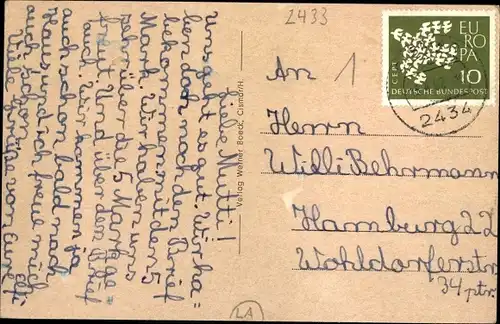 2433
Liebe Mutti!
Uns geht es gut. Wir ha=
ben doch noch den Brief
bekommen mit den 5
Mark. Wir haben uns
sehr über die 5 Mark ge=
freut. Und über den Brief
auch. Wir kommen ja
auch schon bald nach
Hause und ich freue mich
auch schon.
Viele Grüße von Eurer
Elfi
Verlag Werner Boeck, Cismar/H.
An 1
Herrn
Willi Behrmann
Hamburg 22
Wohldorferstr
34 ptr
EUROPA
CEPT
10
DEUTSCHE BUNDESPOST
2434
LA